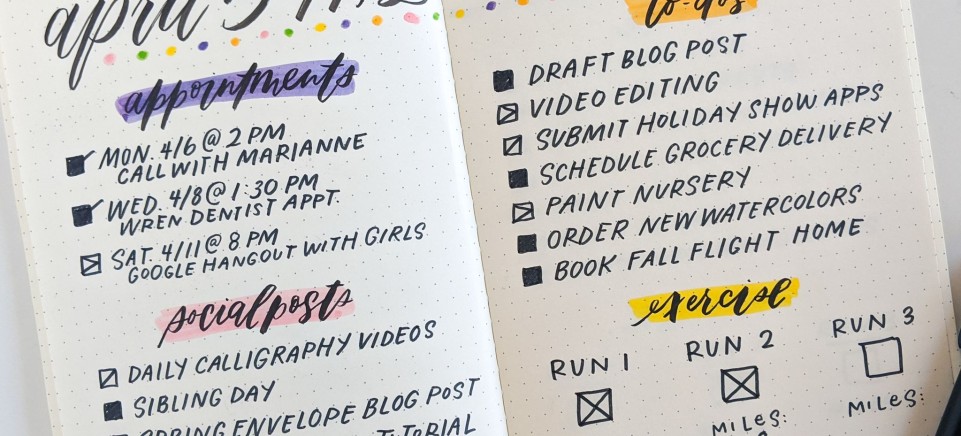 april
appointments
MON. 4/6 @ 2 PM
CALL WITH MARIANNE
WED. 4/8 @ 1:30 PM
WREN DENTIST APPT.
SAT. 4/11 @ 8 PM
GOOGLE HANGOUT WITH GIRLS
social posts
DAILY CALLIGRAPHY VIDEOS
SIBLING DAY
ENVELOPE BLOG POST
to-dos
DRAFT BLOG POST
VIDEO EDITING
SUBMIT HOLIDAY SHOW APPS
SCHEDULE GROCERY DELIVERY
PAINT NURSERY
ORDER NEW WATERCOLORS
BOOK FALL FLIGHT HOME
exercise
RUN 1
RUN 2
RUN 3
MILES:
MILES: